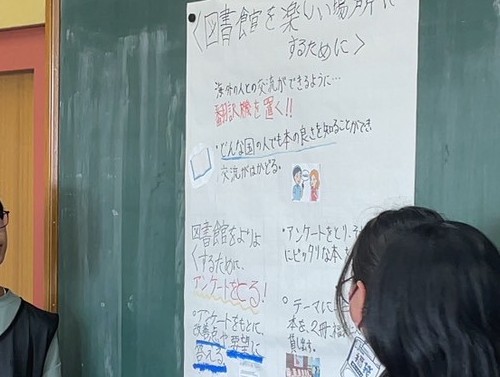 〈図書館を楽しい場所に
するために〉
海外の人との交流ができるように…
翻訳機を置く!!
・どんな国の人でも本の良さを知ることができ、
交流がはかどる。
図書館をよりよ
くするために、
アンケートをとる!
・アンケートをもとに、
改善点や要望に
答える
・アンケートをとり、
にピッタリな本
・テーマに
本を、2冊
貸出す。